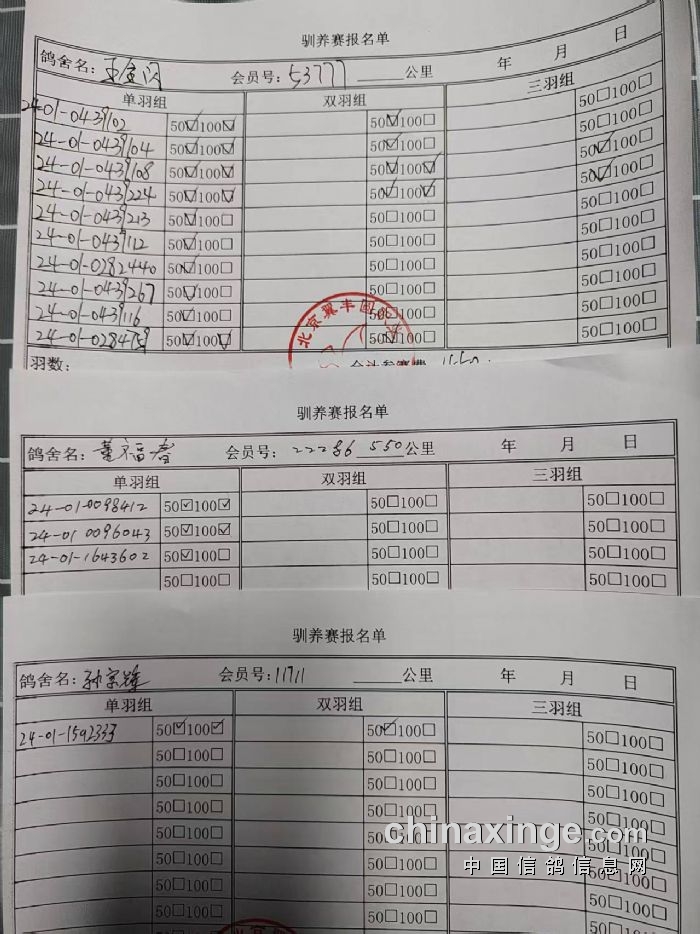 驯养赛报名单
鸽舍名: 会员号:53777 公里 年 月 日
单羽组 双羽组 三羽组
24-01-0439102 50☑100☑ 50☑100☐ 50☐100☐
24-01-0439104 50☑100☑ 50☑100☐ 50☐100☐
24-01-0439108 50☑100☑ 50☑100☑ 50☑100☐
24-01-0439224 50☑100☑ 50☑100☑ 50☑100☐
24-01-0439213 50☑100☐ 50☐100☐ 50☐100☐
24-01-0439112 50☑100☐ 50☐100☐ 50☐100☐
24-01-0282440 50☑100☐ 50☐100☐ 50☐100☐
24-01-0439267 50☑100☐ 50☐100☐ 50☐100☐
24-01-0439116 50☑100☐ 50☐100☐ 50☐100☐
24-01-0284759 50☑100☑ 50☑100☐ 50☐100☐
羽数: 合计参赛费
北京翼丰园
驯养赛报名单
鸽舍名:董福春 会员号:22286 550公里 年 月 日
单羽组 双羽组 三羽组
24-01-0098412 50☑100☑ 50☐100☐ 50☐100☐
24-01 0096043 50☑100☑ 50☐100☐ 50☐100☐
24-01-1643602 50☑100☐ 50☐100☐ 50☐100☐
50☐100☐ 50☐100☐ 50☐100☐
驯养赛报名单
鸽舍名: 会员号:11711 公里 年 月 日
单羽组 双羽组 三羽组
24-01-1592333 50☑100☑ 50☑100☐ 50☐100☐
50☐100☐ 50☐100☐ 50☐100☐
50☐100☐ 50☐100☐ 50☐100☐
50☐100☐ 50☐100☐ 50☐100☐
50☐100☐ 50☐100☐ 50☐100☐
50☐100☐ 50☐100☐ 50☐100☐
50☐100☐ 50☐100☐ 50☐100☐
50☐100☐ 50☐100☐ 50☐100☐
chinaxinge.com
中国信鸽信息网